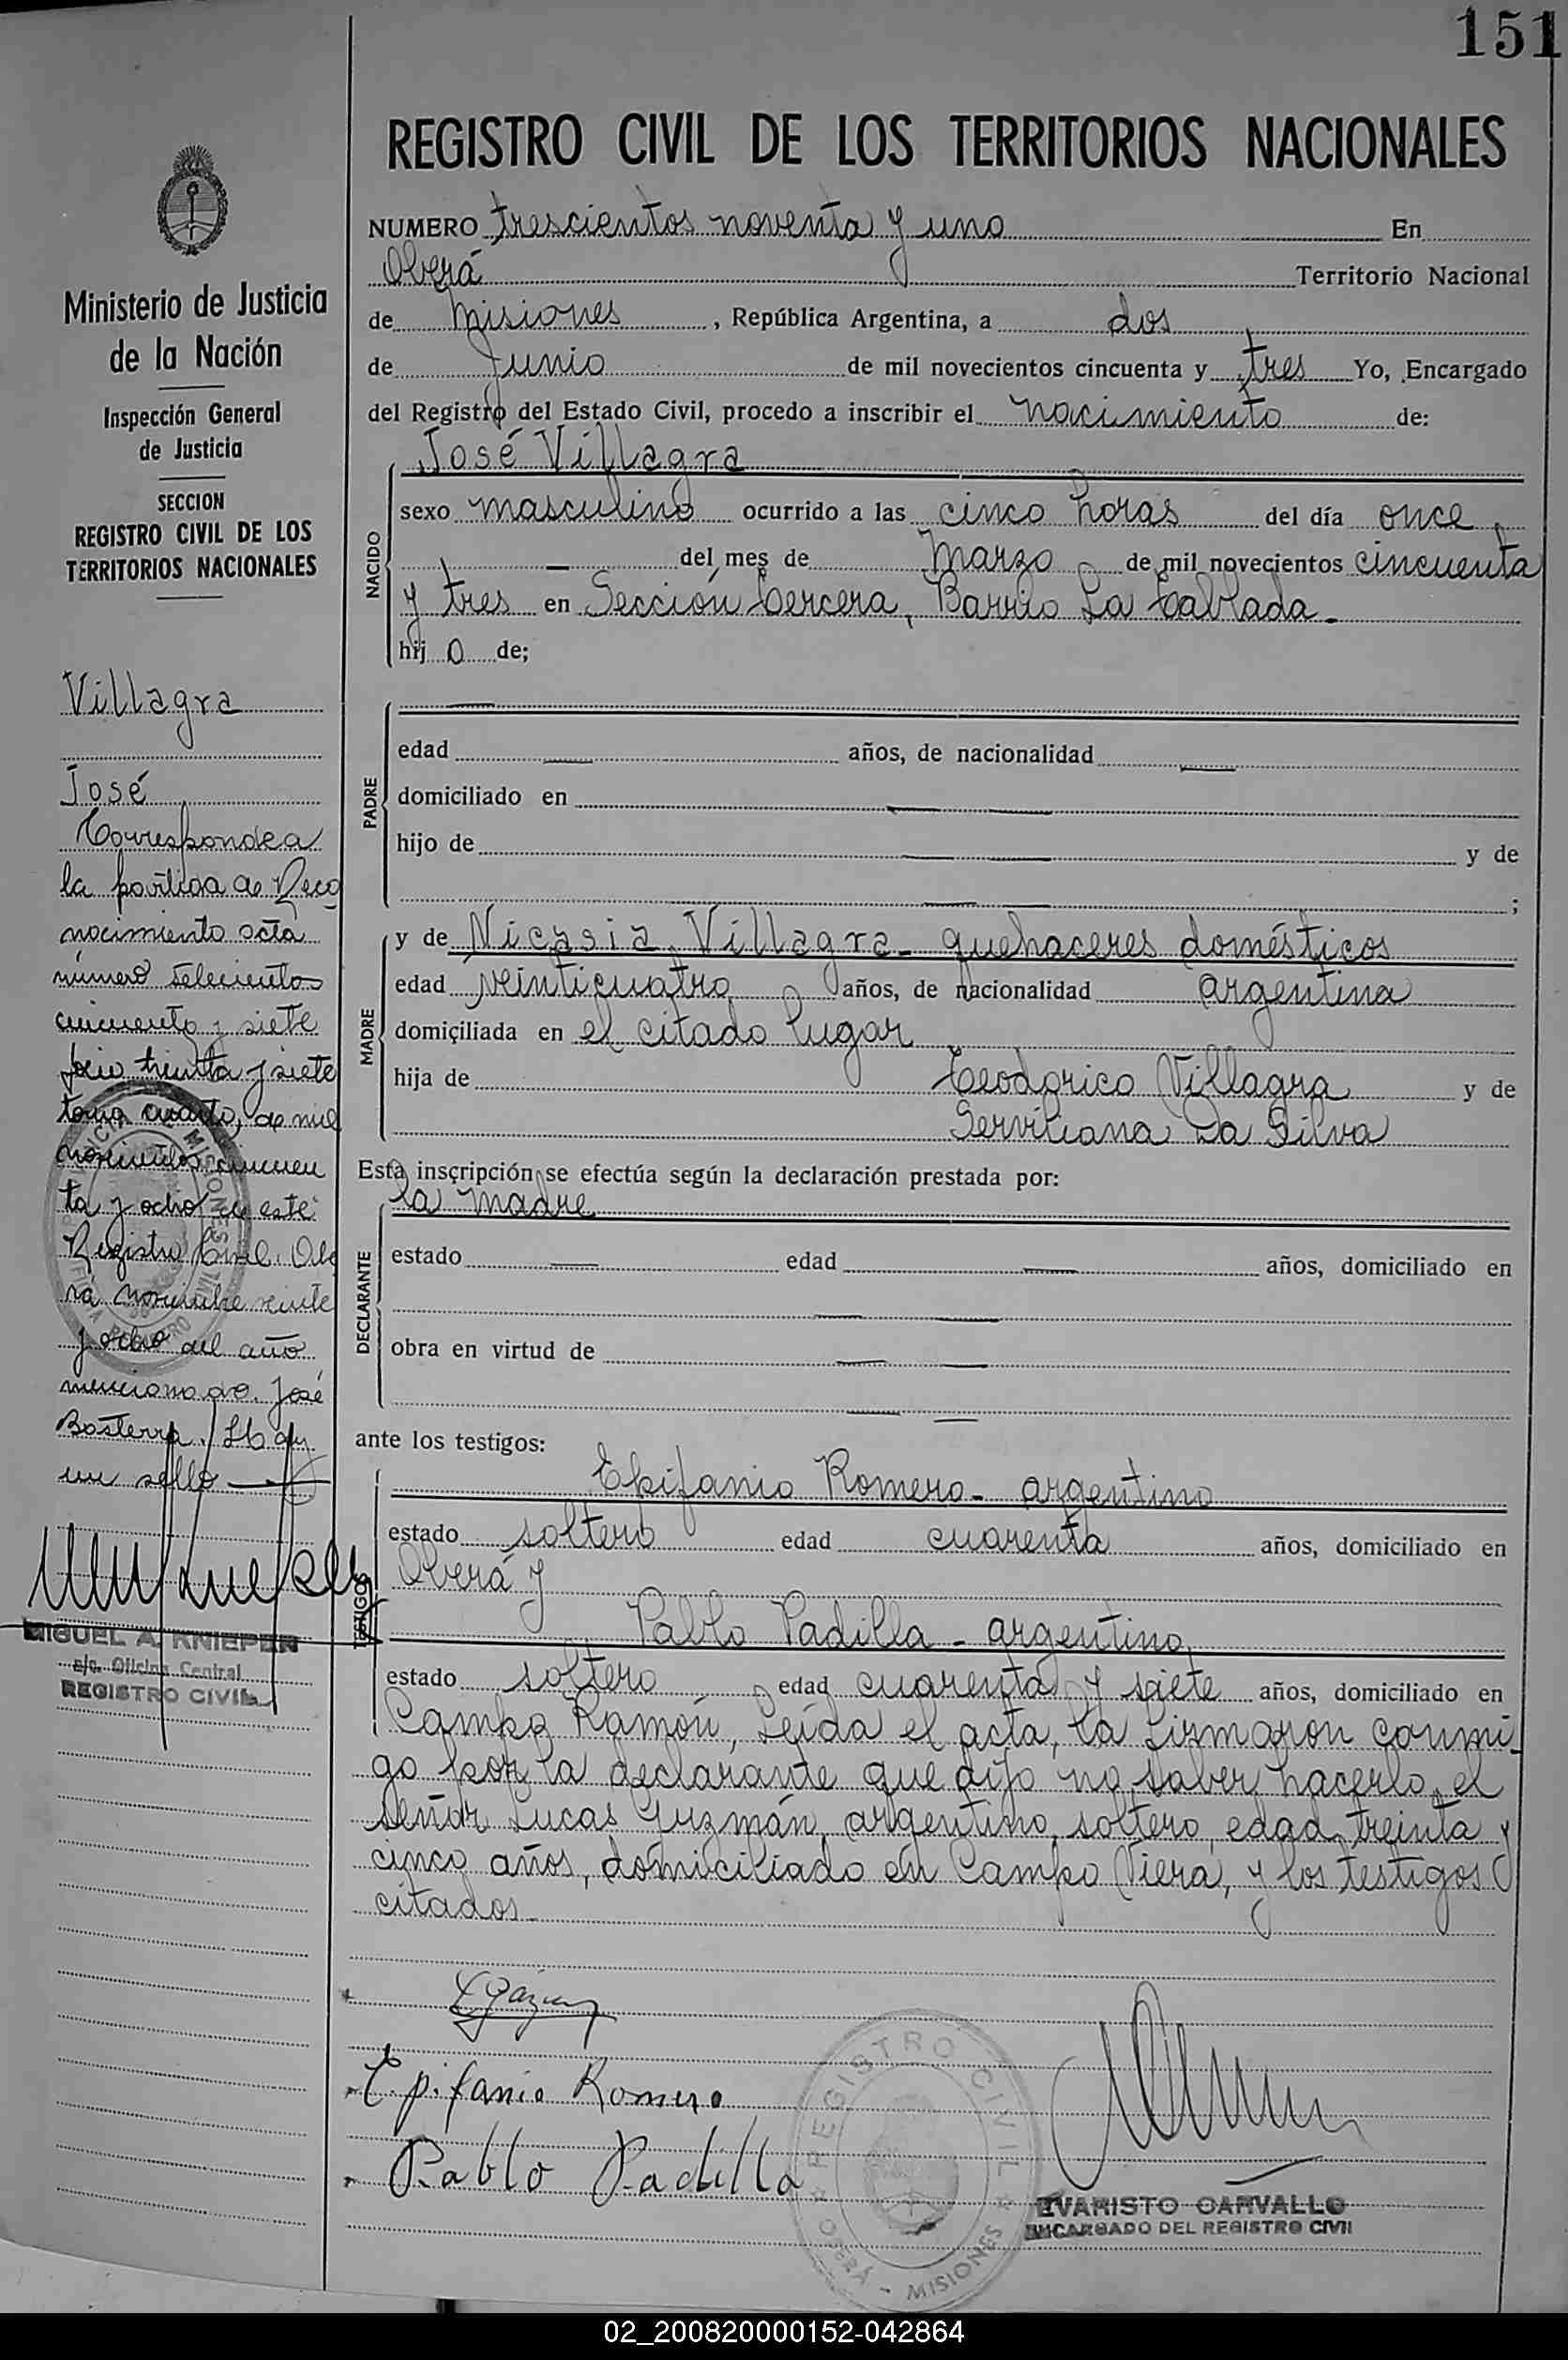 151
REGISTRO CIVIL DE LOS TERRITORIOS NACIONALES
NUMERO trescientos noventa y uno En
Oberá Territorio Nacional
de Misiones, República Argentina, a dos
de Junio de mil novecientos cincuenta y tres Yo, Encargado
del Registro del Estado Civil, procedo a inscribir el nacimiento de:
José Villagra
NACIDO
sexo masculino ocurrido a las cinco horas del día once
del mes de Marzo de mil novecientos cincuenta
y tres en Sección tercera, Barrio La Tablada.
hij o de;
PADRE
edad años, de nacionalidad
domiciliado en
hijo de y de
;
MADRE
y de Nicasia Villagra - quehaceres domésticos
edad veinticuatro años, de nacionalidad argentina
domiciliada en el citado lugar
hija de Teodorico Villagra y de
Serviliana Da Silva
Esta inscripción se efectúa según la declaración prestada por:
la madre
DECLARANTE
estado edad años, domiciliado en
obra en virtud de
ante los testigos:
TESTIGOS
Epifanio Romero - argentino
estado soltero edad cuarenta años, domiciliado en
Oberá y
Pablo Padilla - argentino
estado soltero edad cuarenta y siete años, domiciliado en
Campo Ramón, Leída el acta, la firmaron conmi-
go por la declarante que dijo no saber hacerlo, el
señor Lucas Guzmán, argentino, soltero, edad treinta y
cinco años, domiciliado en Campo Viera, y los testigos
citados.
Epifanio Romero
Pablo Padilla
REGISTRO CIVIL
OBERÁ - MISIONES
EVARISTO CARVALLO
ENCARGADO DEL REGISTRO CIVIL
Ministerio de Justicia
de la Nación
Inspección General
de Justicia
SECCION
REGISTRO CIVIL DE LOS
TERRITORIOS NACIONALES
Villagra
José
Corresponde a
la partida de Reco
nocimiento acta
número setecientos
cincuenta y siete
folio treinta y siete
tomo cuarto, de mil
novecientos cincuen
ta y ocho de este
Registro Civil. Obe
rá noviembre veinte
y ocho del año
mencionado. José
Basterra. Hay
un sello
MIGUEL A. KNIEPEN
a/c. Oficina Central
REGISTRO CIVIL
02_200820000152-042864